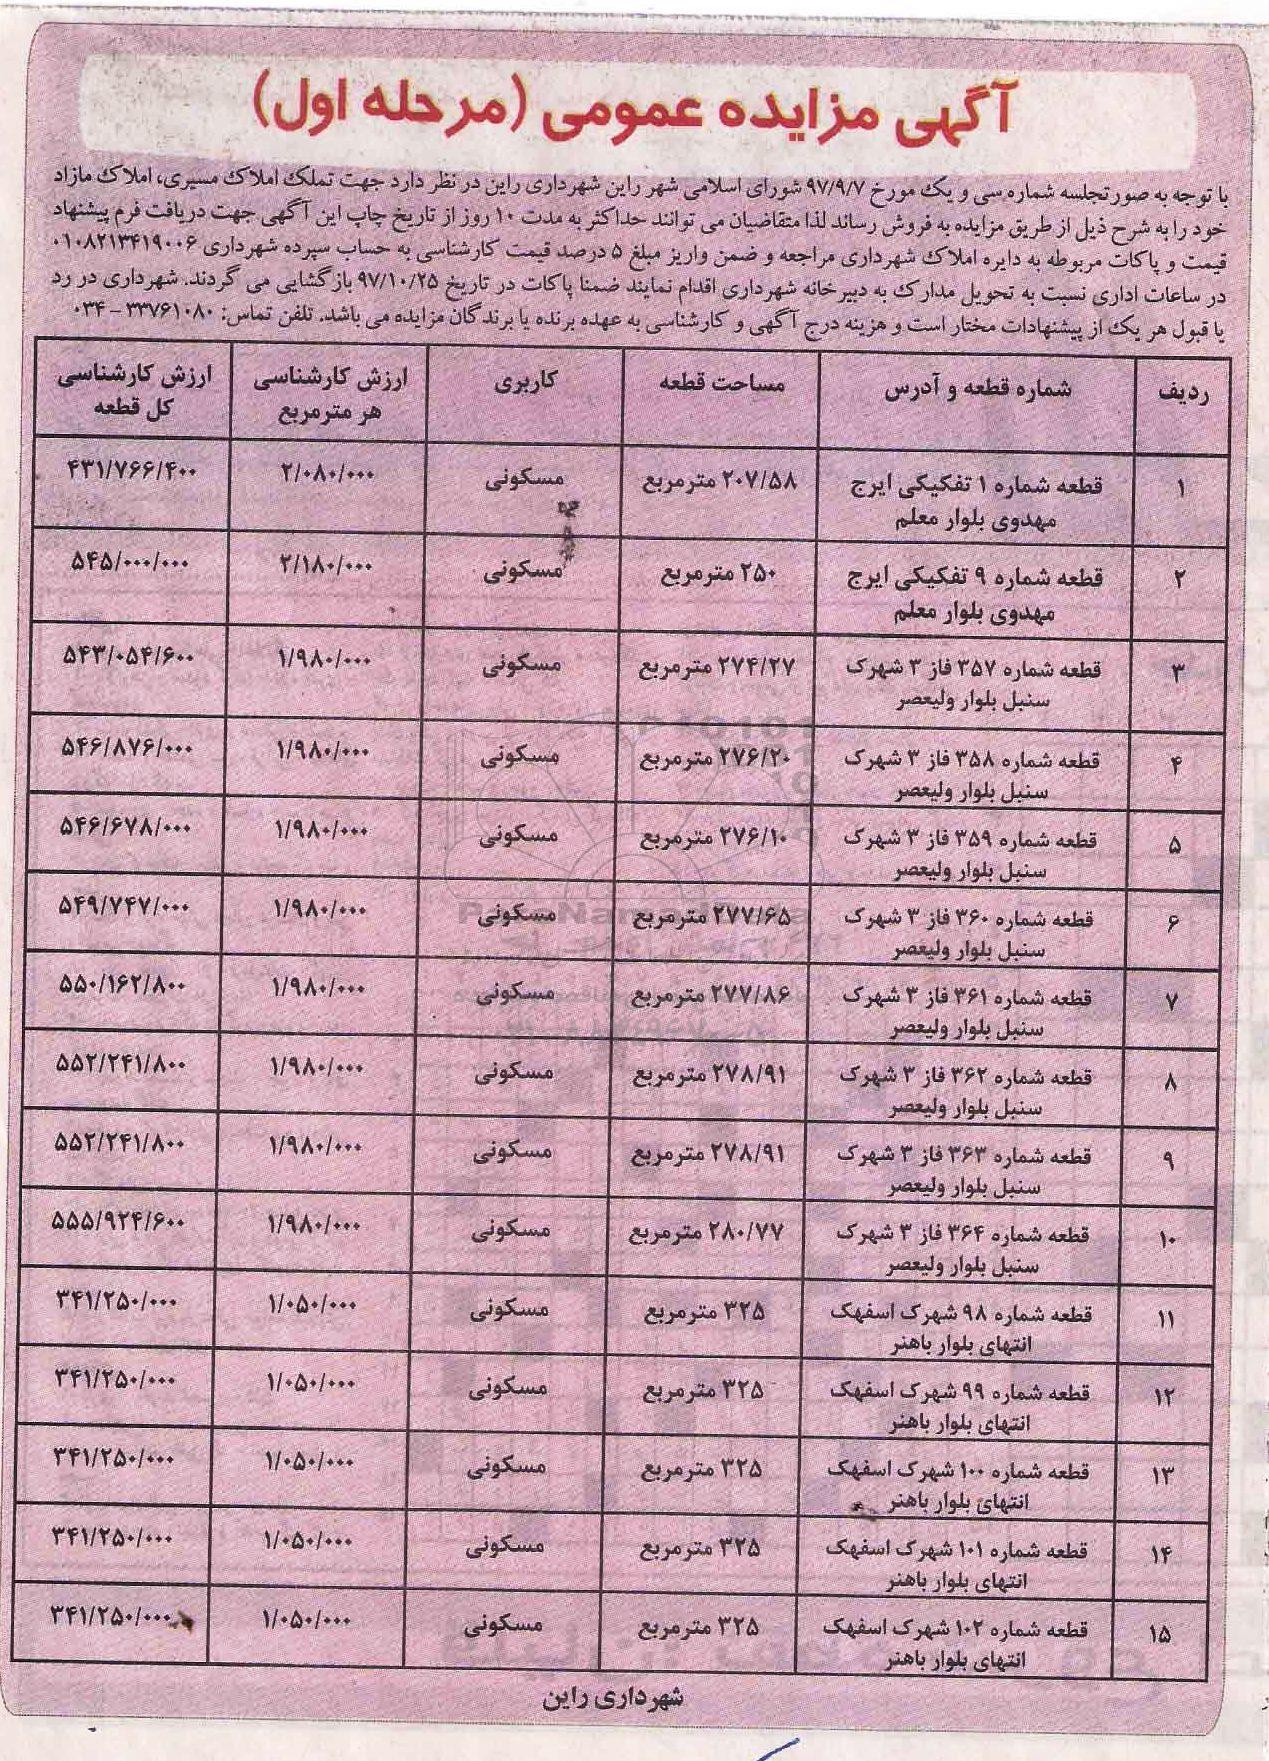 آگهی مزایده عمومی (مرحله اول)
با توجه به صورتجلسه شماره سی و یک مورخ ۹۷/۹/۷ شورای اسلامی شهر راین شهرداری راین در نظر دارد جهت تملک املاک مسیری، املاک مازاد
خود را به شرح ذیل از طریق مزایده به فروش رساند لذا متقاضیان می توانند حداکثر به مدت ۱۰ روز از تاریخ چاپ این آگهی جهت دریافت فرم پیشنهاد
قیمت و پاکات مربوطه به دایره املاک شهرداری مراجعه و ضمن واریز مبلغ ۵ درصد قیمت کارشناسی به حساب سپرده شهرداری ۰۱۰۸۲۱۳۴۱۹۰۰۶
در ساعات اداری نسبت به تحویل مدارک به دبیرخانه شهرداری اقدام نمایند ضمنا پاکات در تاریخ ۹۷/۱۰/۲۵ بازگشایی می گردند. شهرداری در رد
یا قبول هر یک از پیشنهادات مختار است و هزینه درج آگهی و کارشناسی به عهده برنده یا برندگان مزایده می باشد. تلفن تماس: ۳۳۷۶۱۰۸۰ - ۰۳۴
ردیف شماره قطعه و آدرس مساحت قطعه کاربری ارزش کارشناسی هر مترمربع ارزش کارشناسی کل قطعه
۱ قطعه شماره ۱ تفکیکی ایرج ۲۰۷/۵۸ مترمربع مسکونی ۲/۰۸۰/۰۰۰ ۴۳۱/۷۶۶/۴۰۰
مهدوی بلوار معلم
۲ قطعه شماره ۹ تفکیکی ایرج ۲۵۰ مترمربع مسکونی ۲/۱۸۰/۰۰۰ ۵۴۵/۰۰۰/۰۰۰
مهدوی بلوار معلم
۳ قطعه شماره ۳۵۷ فاز ۳ شهرک ۲۷۴/۲۷ مترمربع مسکونی ۱/۹۸۰/۰۰۰ ۵۴۳/۰۵۴/۶۰۰
سنبل بلوار ولیعصر
۴ قطعه شماره ۳۵۸ فاز ۳ شهرک ۲۷۶/۲۰ مترمربع مسکونی ۱/۹۸۰/۰۰۰ ۵۴۶/۸۷۶/۰۰۰
سنبل بلوار ولیعصر
۵ قطعه شماره ۳۵۹ فاز ۳ شهرک ۲۷۶/۱۰ مترمربع مسکونی ۱/۹۸۰/۰۰۰ ۵۴۶/۶۷۸/۰۰۰
سنبل بلوار ولیعصر
۶ قطعه شماره ۳۶۰ فاز ۳ شهرک ۲۷۷/۶۵ مترمربع مسکونی ۱/۹۸۰/۰۰۰ ۵۴۹/۷۴۷/۰۰۰
سنبل بلوار ولیعصر
۷ قطعه شماره ۳۶۱ فاز ۳ شهرک ۲۷۷/۸۶ مترمربع مسکونی ۱/۹۸۰/۰۰۰ ۵۵۰/۱۶۲/۸۰۰
سنبل بلوار ولیعصر
۸ قطعه شماره ۳۶۲ فاز ۳ شهرک ۲۷۸/۹۱ مترمربع مسکونی ۱/۹۸۰/۰۰۰ ۵۵۲/۲۴۱/۸۰۰
سنبل بلوار ولیعصر
۹ قطعه شماره ۳۶۳ فاز ۳ شهرک ۲۷۸/۹۱ مترمربع مسکونی ۱/۹۸۰/۰۰۰ ۵۵۲/۲۴۱/۸۰۰
سنبل بلوار ولیعصر
۱۰ قطعه شماره ۳۶۴ فاز ۳ شهرک ۲۸۰/۷۷ مترمربع مسکونی ۱/۹۸۰/۰۰۰ ۵۵۵/۹۲۴/۶۰۰
سنبل بلوار ولیعصر
۱۱ قطعه شماره ۹۸ شهرک اسفهک ۳۲۵ مترمربع مسکونی ۱/۰۵۰/۰۰۰ ۳۴۱/۲۵۰/۰۰۰
انتهای بلوار باهنر
۱۲ قطعه شماره ۹۹ شهرک اسفهک ۳۲۵ مترمربع مسکونی ۱/۰۵۰/۰۰۰ ۳۴۱/۲۵۰/۰۰۰
انتهای بلوار باهنر
۱۳ قطعه شماره ۱۰۰ شهرک اسفهک ۳۲۵ مترمربع مسکونی ۱/۰۵۰/۰۰۰ ۳۴۱/۲۵۰/۰۰۰
انتهای بلوار باهنر
۱۴ قطعه شماره ۱۰۱ شهرک اسفهک ۳۲۵ مترمربع مسکونی ۱/۰۵۰/۰۰۰ ۳۴۱/۲۵۰/۰۰۰
انتهای بلوار باهنر
۱۵ قطعه شماره ۱۰۲ شهرک اسفهک ۳۲۵ مترمربع مسکونی ۱/۰۵۰/۰۰۰ ۳۴۱/۲۵۰/۰۰۰
انتهای بلوار باهنر
شهرداری راین